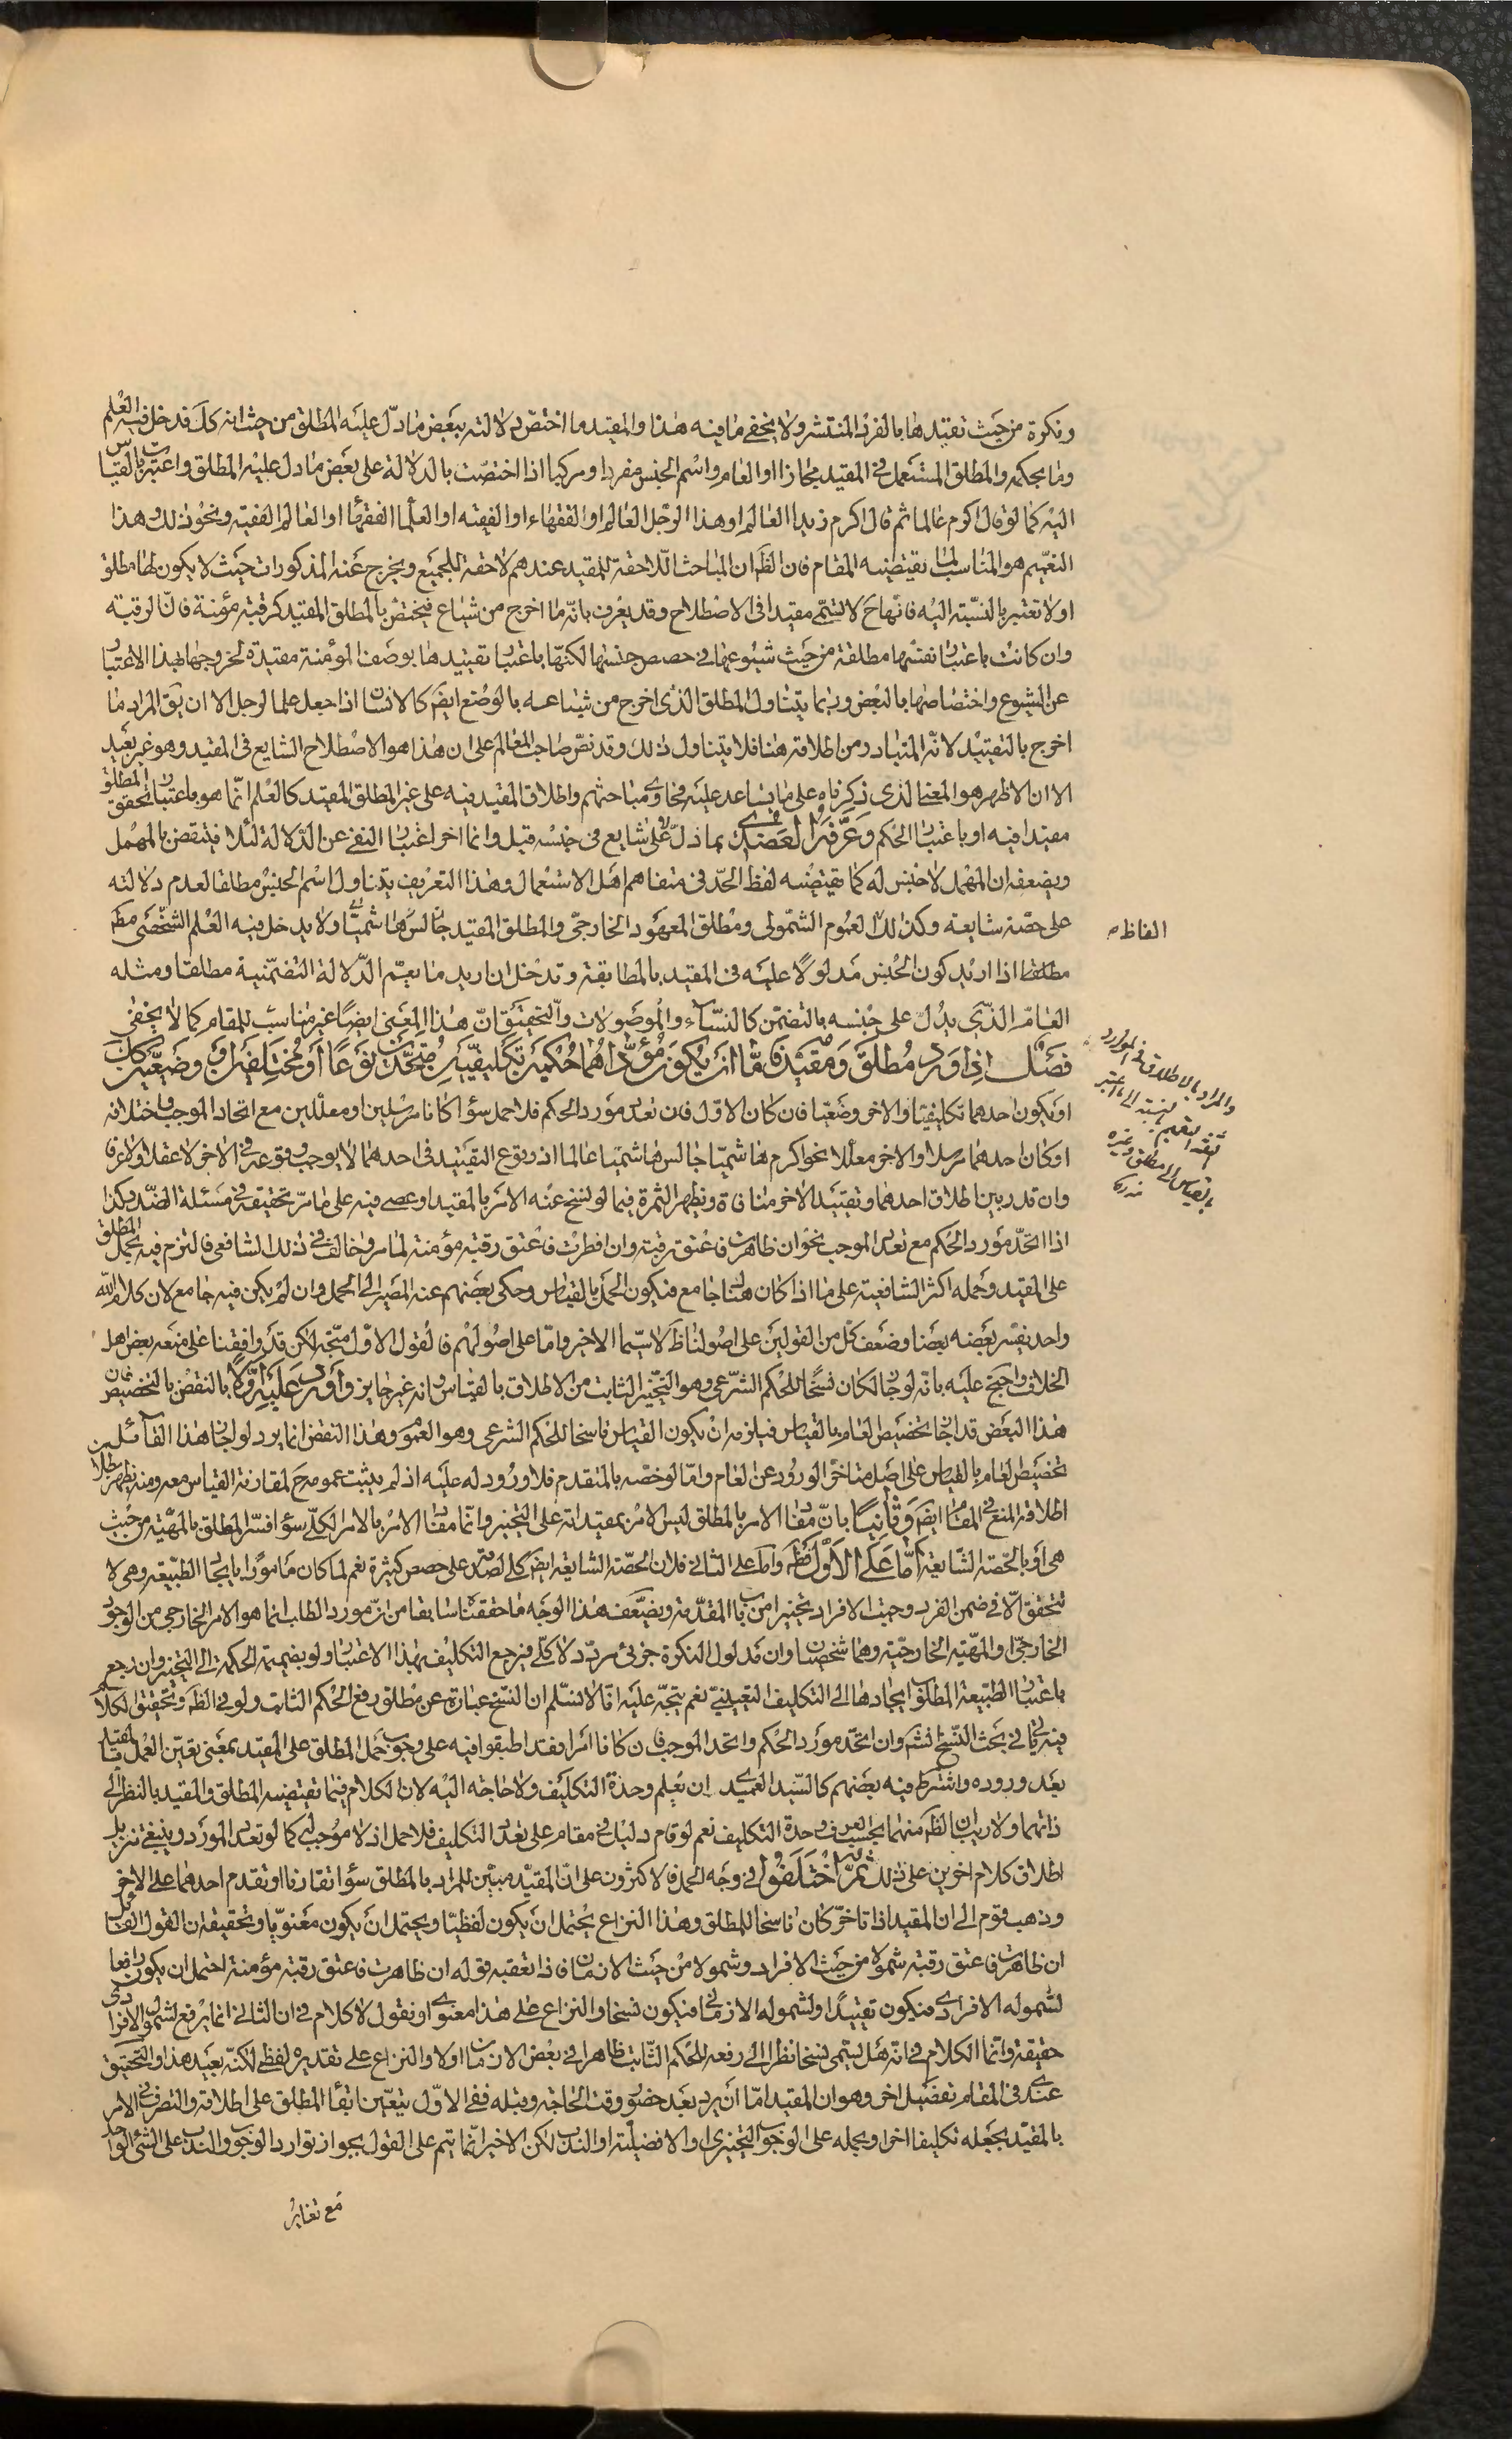 ونكرة من حيث تقييدها بالفرد المنتشر ولا يخفى ما فيه هذا والمقيد ما اختص دلالته ببعض ما دلّ عليه المطلق من حيث انه كل فدخل فيه العلم
وما بحكمه والمطلق المستعمل في المقيد مجازا او العام واسم الجنس مفردا ومركبا اذا اختصّت بالدلالة على بعض ما دل عليه المطلق واعتبرت بالقياس
اليه كما لو قال اكرم عالما ثم قال اكرم زيدا العالم او هذا الرّجل العالم او الفقهاء او الفقيه او العلماء الفقهاء او العالم الفقيه ونحو ذلك وهذا
التعميم هو المناسب لما يقتضيه المقام فان الظ ان المباحث اللاحقة للمقيد عندهم لاحقة للجميع ويخرج عنه المذكورات حيث لا يكون لها مطلق
او لا تعتبر بالنسبة اليه فانها ح لا تسمّى مقيدا في الاصطلاح وقد يعرف بانّه ما اخرج من شياع فيختصّ بالمطلق المقيد كرقبة مؤمنة فانّ الرقبة
وان كانت باعتبار نفسها مطلقة من حيث شيوعها في حصص جنسها لكنّها باعتبار تقييدها بوصف المؤمنة مقيدة لخروجها بهذا الاعتبار
عن الشيوع واختصاصها بالبعض وربما يتناول المطلق الذي اخرج من شياعه بالوضع ايض كالانسان اذا جعل علما لرجل الا ان يق المراد ما
اخرج بالتقييد لانّه المتبادر من اطلاقه هنا فلا يتناول ذلك وقد نصّ صاحب المعالم على ان هذا هو الاصطلاح الشايع في المقيد وهو غير بعيد
الا ان الاظهر هو المعنى الذي ذكرناه على ما يساعد عليه فحاوى مباحثهم واطلاق المقيد فيه على غير المطلق المقيد كالعلم انّما هو باعتبار تحقق المطلق
مقيدا فيه او باعتبار الحكم وعرّفه العضدي بما دلّ لا على شايع في جنسه قيل وانما اخر اعتبار النفى عن الدّلالة لئلا فينتقض بالمهمل
ويضعفه ان المهمل لا جنس له كما يقتضيه لفظ الحدّ في متفاهم اهل الاستعمال وهذا التعريف يتناول اسم الجنس مطلقا لعدم دلالته
على حصّة شايعة وكذلك العموم الشّمولى ومطلق المعهود الخارجى والمطلق المقيد جالس هاشميّا ولا يدخل فيه العلم الشّخصى مط
مطلقا اذا اريد كون الجنس مدلولًا عليه في المقيد بالمطابقة وتدخل ان اريد ما يعمّ الدّلالة التضمّنية مطلقا ومثله
العامّ الذّي يدلّ على جنسه بالتضمّن كالنساء والموصولات والتحقيق انّ هذا المعنى ايضًا غير مناسب للمقام كما لا يخفى
فصل اذا ورد مطلق ومقيّد فامّا ان يكون مؤدّاهما حكمين تكليفيّين متّحدين نوعًا او مختلفين او وضعيّين كك
او يكون احدهما تكليفيّا والاخر وضعيّا فان كان الاوّل فان تعدد مورد الحكم فلا حمل سواء كانا مرسلين او معلّلين مع اتحاد الموجب واختلافه
او كان احدهما مرسلا والاخر معلّلا نحو اكرم هاشميّا جالس هاشميّا عالما اذ وقوع التقييد في احدهما لا يوجب وقوعه في الاخر لا عقلا ولا عرفا
وان قدر بين اطلاق احدهما وتقييد الاخر منافاة ويظهر الثمرة فيما لو نسخ عنه الامر بالمقيد او عصى فيه على ما مرّ تحقيقه في مسئلة الضدّ وكذا
اذا اتحّد مورد الحكم مع تعدد الموجب نحو ان ظاهرت فاعتق رقبة وان افطرت فاعتق رقبة مؤمنة لما مر وخالف في ذلك الشافعى فالتزم فيه بحمل المطلق
على المقيد وحمله اكثر الشافعية على ما اذا كان هناك جامع فيكون الحمل بالقياس وحكى بعضهم عنه المصير الى الحمل وان لم يكن فيه جامع لان كلام الله
واحد يفسّر بعضه بعضا وضعف كلّ من القولين على اصولنا ظ لا سيّما الاخير وامّا على اصولهم فالقول الاوّل متّجه لكن قد وافقنا على منعه بعض اهل
الخلاف واحتج عليه بانّه لو جاز لكان نسخًا للحكم الشرّعى وهو التّخيير الثابت من الاطلاق بالقياس وانه غير جايز واورد عليه اوّلًا بالنقض بالتخصيص فان
هذا البعض قد اجاز تخصيص العام بالقياس فيلزمه ان يكون القياس ناسخا للحكم الشرعى وهو العموم وهذا النقض انما يرد لو اجاز هذا القائل من
تخصيص العام بالقياس على اصل متاخّر الورود عن العام وامّا لو خصّه بالمتقدم فلا ورود له عليه اذ لم يثبت عمومه ح لمقارنة القياس معه ومنه يظهر بطلان
اطلاقه المنع في المقام ايض وثانيًا بانّ مفاد الامر بالمطلق ليس الامر بمقيداته على التخيير وانما مفاده الامر بالامر الكلّى سواء فسّر المطلق بالمهيّة من حيث
هى او بالحصّة الشّايعة امّا على الاوّل فظ واما على الثانى فلان الحصّة الشايعة ايض كلى لصدقه على حصص كثيرة نعم لما كان مامورا بايجاد الطّبيعة وهى لا
تتحقق الّا في ضمن الفرد وجبت الافراد تخييرا من باب المقدّمة ويضعّف هذا الوجه ما حققناه سابقا من انّ مورد الطلب انما هو الامر الخارجى من الوجود
الخارجىّ او المهيّة الخارجيّة وهما شخصيان وان مدلول النكرة جزئى مردّد لا كلّى فيرجع التكليف بهذا الاعتبار ولو بضميمة الحكمة الى التخيير وان رجع
باعتبار الطّبيعة المطلوب ايجادها الى التكليف التعيينىّ نعم يتجّه عليه انّا لا نسلّم ان النسّخ عبارة عن مطلق رفع الحكم الثابت ولو في الظ وتحقيق الكلام
فيه ياتى في بحث النّسخ انش وان اتحّد مورد الحكم واتحد الموجب فان كانا امرا فقد اطبقوا فيه على وجوب حمل المطلق على المقيد بمعنى تعيّن العمل بالمقيد
بعد وروده واشترط فيه بعضهم كالسّيد العميدى ان يعلم وحدة التكليف ولا حاجة اليه لان الكلام فيما يقتضيه المطلق والمقيد بالنظر الى
ذاتهما ولا ريب ان الظ منهما بحسب العرف وحدة التكليف نعم لو قام دليل في مقام على تعدد التكليف فلا حمل اذ لا موجب له كما لو تعدد المورد وينبغى تنزيل
اطلاق كلام اخرين على ذلك ثمّ اختلفوا في وجه الحمل فالاكثرون على انّ المقيد مبيّن للمراد بالمطلق سواء تقارنا او تقدم احدهما على الاخر
وذهب قوم الى ان المقيد اذا تاخّر كان ناسخا للمطلق وهذا النزاع يحتمل ان يكون لفظيا ويحتمل ان يكون معنويّا وتحقيقه ان القول القائل
ان ظاهرت فاعتق رقبة شمولا من حيث الافراد وشمولا من حيث الازمان فاذا تعقبه قوله ان ظاهرت فاعتق رقبة مؤمنة احتمل ان يكون رافعا
لشموله الافرادى فيكون تقييدًا او لشموله الازمانى فيكون نسخا والنزاع على هذا معنوى او نقول لا كلام في ان الثانى انما يرفع لشموله الافرادى
حقيقة وانما الكلام في انه هل يسمّى نسخا نظرا الى رفعه للحكم الثابت ظاهرا في بعض الازمان او لا والنزاع على تقديره لفظى لكنّه بعيد هذا والتحقيق
عندى في المقام تفصيل اخر وهو ان المقيد امّا ان يرد بعد حضور وقت الحاجة او قبله ففى الاوّل يتعيّن ابقاء المطلق على اطلاقه والتصرف في الامر
بالمقيد بجعله تكليفا اخر او بحمله على الوجوب التخييرى او الافضلية او الندب لكن الاخير انّما يتم على القول بجواز توارد الوجوب والندب على الشّىء الواحد
مع تغاير
الفاظ ص
والمراد بالاطلاق في الموارد